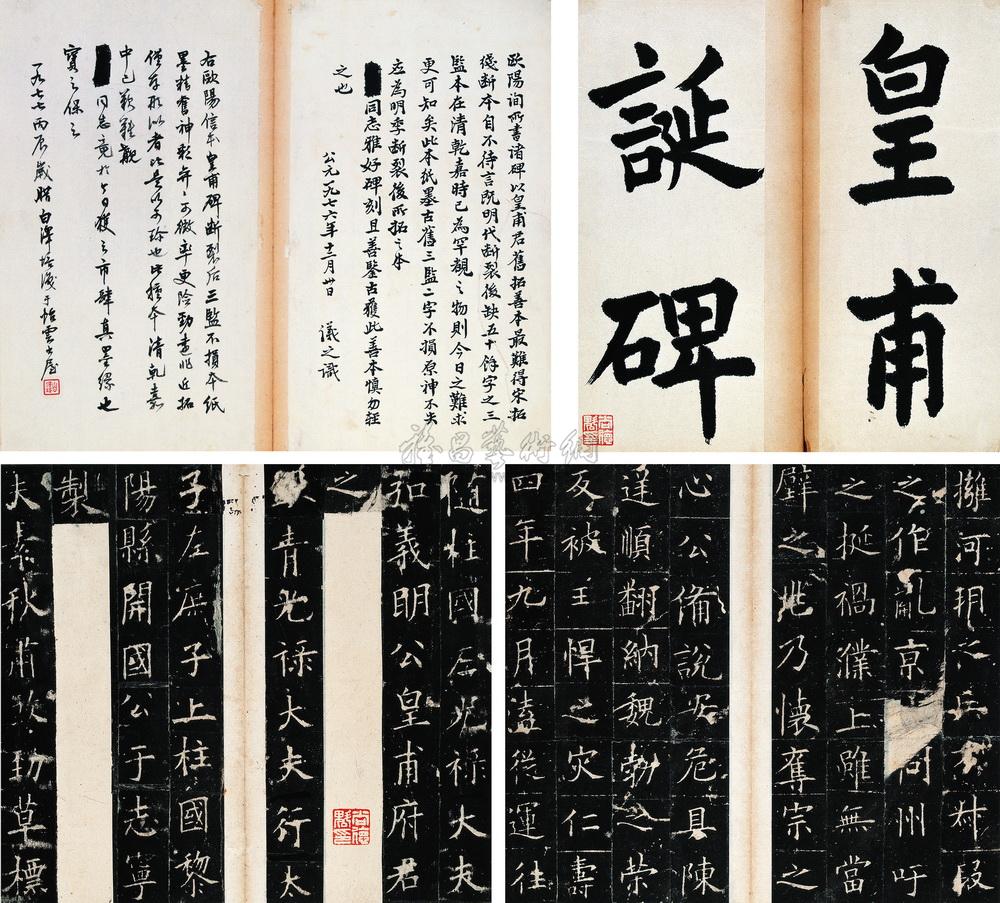 皇甫
誕碑
歐陽詢所書諸碑以皇甫君舊拓善本最難得宋拓
綫斷本自不待言既明代斷裂後缺五十餘字之三
監本在清乾嘉時已為罕覯之物則今日之難求
更可知矣此本紙墨古舊三監二字不損原神不失
左為明季斷裂後所拓之本
同志雅好碑刻且善鑒古獲此善本慎勿輕
之也
公元一九七六年十二月卅日 儀之識
右歐陽信本皇甫碑斷裂后三監不損本紙
墨精奮神彩
僅存形似者此是
中已難觀
同志竟於今日獲之市肆真墨緣也
寶之保之
一九七七丙辰歲腊白
隨柱國左光祿大夫
弘義明公皇甫府君
之
青光祿大夫行太
子左庶子上柱國黎
陽縣開國公于志寧
製
夫素秋肅煞勁草標
擁河朔之兵
之作亂京同州吁
之挺禍濮上雖無當
璧之兆乃懷奪宗之
心公備說安危具陳
逆順翻納魏勃之榮
反被王悍之災仁壽
四年九月遘從運往
裕昌藝術網